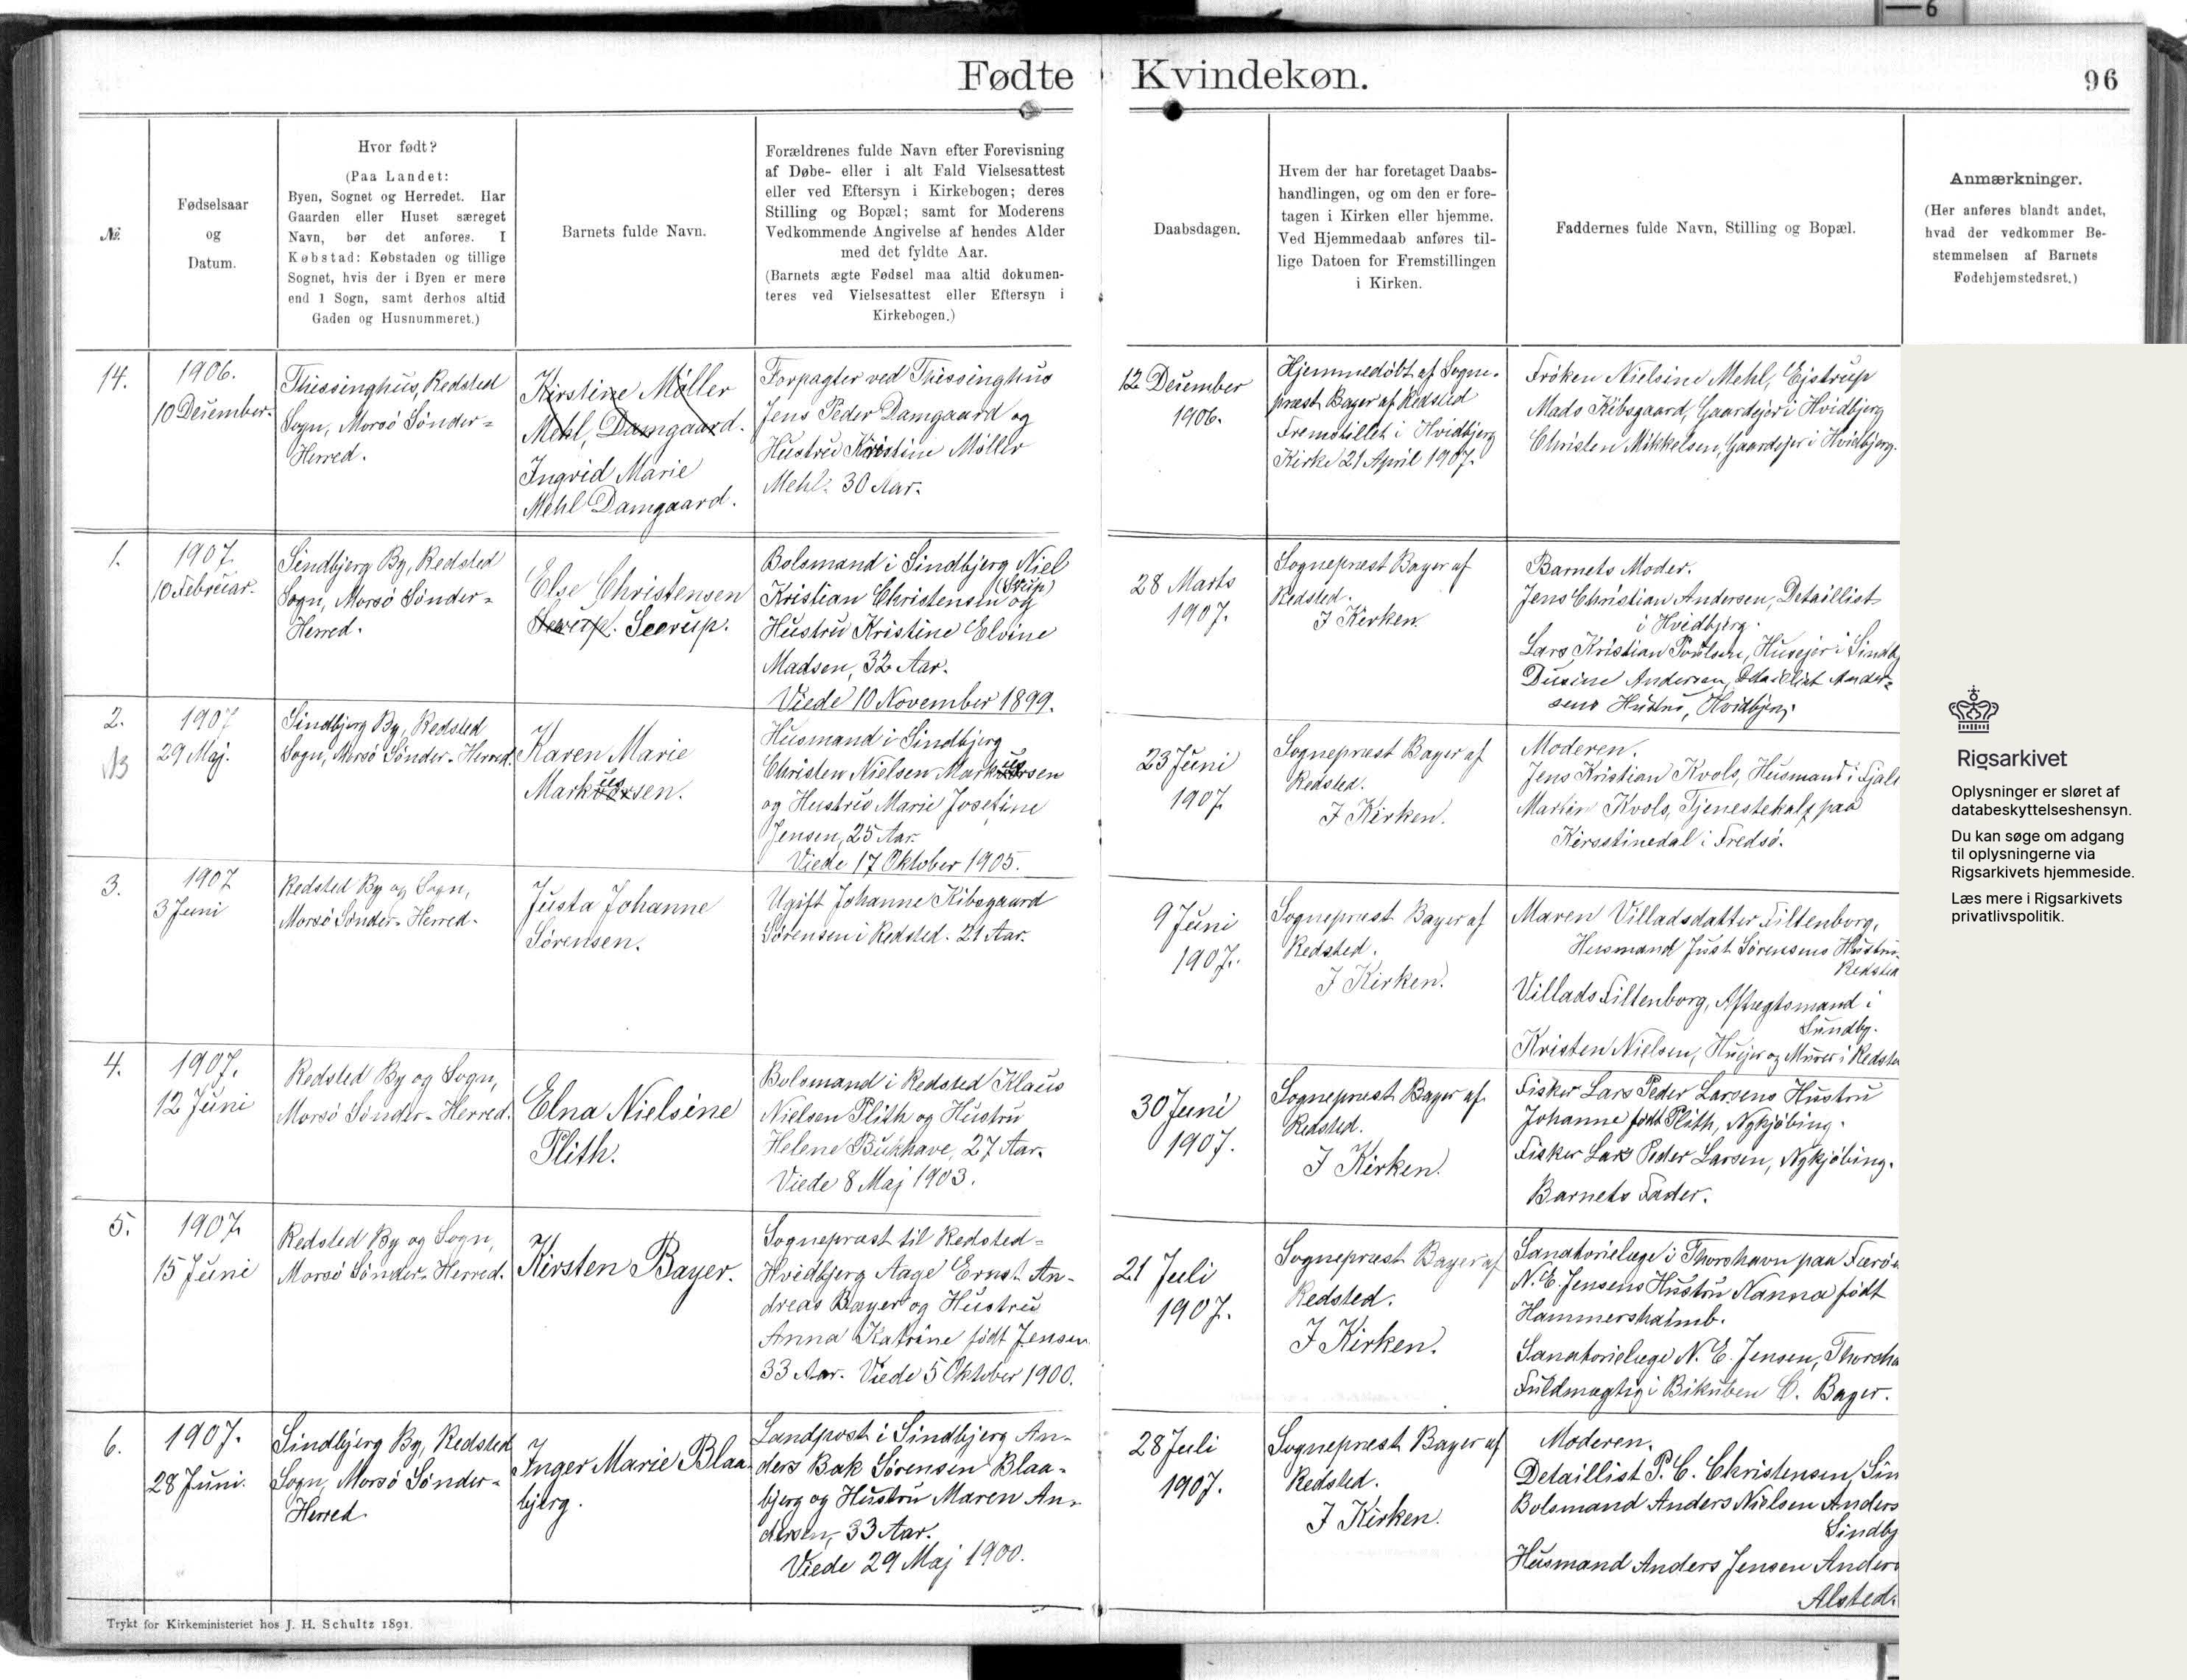 6
Fødte Kvindekøn.
96
№
Fødselsaar
og
Datum.
Hvor født?
(Paa Landet:
Byen, Sognet og Herredet. Har
Gaarden eller Huset særeget
Navn, bør det anføres. I
Købstad: Købstaden og tillige
Sognet, hvis der i Byen er mere
end 1 Sogn, samt derhos altid
Gaden og Husnummeret.)
Barnets fulde Navn.
Forældrenes fulde Navn efter Forevisning
af Døbe- eller i alt Fald Vielsesattest
eller ved Eftersyn i Kirkebogen; deres
Stilling og Bopæl; samt for Moderens
Vedkommende Angivelse af hendes Alder
med det fyldte Aar.
(Barnets ægte Fødsel maa altid dokumen-
teres ved Vielsesattest eller Eftersyn i
Kirkebogen.)
Daabsdagen.
Hvem der har foretaget Daabs-
handlingen, og om den er fore-
tagen i Kirken eller hjemme.
Ved Hjemmedaab anføres til-
lige Datoen for Fremstillingen
i Kirken.
Faddernes fulde Navn, Stilling og Bopæl.
Anmærkninger.
(Her anføres blandt andet,
hvad der vedkommer Be-
stemmelsen af Barnets
Fødehjemstedsret.)
14.
1906.
10 December.
Thissinghus, Redsted
Sogn, Morsö Sönder-
Herred.
Kirstine Møller
Mehl, Damgaard.
Ingvid Marie
Mehl Damgaard.
Forpagter ved Thissinghus
Jens Peder Damgaard og
Hustru Kirstine Møller
Mehl. 30 Aar.
12 December
1906.
Hjemmedöbt af Sogne-
præst Bayer af Redsted
Fremstillet i Hvidbjerg
Kirke 21 April 1907.
Fröken Nielsine Mehl, Ejstrup
Mads Kibsgaard, Gaardejer i Hvidbjerg
Christen Mikkelsen, Gaardejer i Hvidbjerg.
1.
1907
10 Februar.
Sindbjerg By, Redsted
Sogn, Morsö Sönder-
Herred.
Else Christensen
Seerup.
Bolsmand i Sindbjerg Niel
Kristian Christensen og
Hustru Kristine Elvine
Madsen, 32 Aar.
Viede 10 November 1899.
28 Marts
1907.
Sognepræst Bayer af
Redsted.
I Kirken.
Barnets Moder.
Jens Christian Andersen, Detaillist
i Hvidbjerg.
Lars Kristian Poulsen, Husejer i Sindb
Dusine Andersen, Detaillist Ander-
sens Hustru, Hvidbjerg.
2.
1907
29 Maj.
Sindbjerg By, Redsted
Sogn, Morsö Sönder-Herred.
Karen Marie
Markussen.
Husmand i Sindbjerg
Christen Nielsen Markussen
og Hustru Marie Josefine
Jensen, 25 Aar.
Viede 17 Oktober 1905.
23 Juni
1907
Sognepræst Bayer af
Redsted.
I Kirken.
Moderen.
Jens Kristian Kvols, Husmand i Fjall
Martin Kvols, Tjenestekarl paa
Kirsstinedal i Fredsö.
3.
1907
3 Juni
Redsted By og Sogn,
Morsö Sönder-Herred.
Justa Johanne
Sörensen.
Ugift Johanne Kibsgaard
Sörensen i Redsted. 21 Aar.
9 Juni
1907.
Sognepræst Bayer af
Redsted.
I Kirken.
Maren Villadsdatter Filtenborg,
Husmand Just Sörensens Hustru
Redsted
Villads Filtenborg, Aftægtsmand i
Sundby.
Kristen Nielsen, Husejer og Murer i Redste
4.
1907.
12 Juni
Redsted By og Sogn,
Morsö Sönder-Herred.
Elna Nielsine
Plith.
Bolsmand i Redsted Klaus
Nielsen Plith og Hustru
Helene Bukhave, 27 Aar.
Viede 8 Maj 1903.
30 Juni
1907.
Sognepræst Bayer af
Redsted.
I Kirken.
Fisker Lars Peder Larsens Hustru
Johanne født Plith, Nykjöbing.
Fisker Lars Peder Larsen, Nykjöbing.
Barnets Fader.
5.
1907
15 Juni
Redsted By og Sogn,
Morsö Sönder-Herred.
Kirsten Bayer.
Sognepræst til Redsted-
Hvidbjerg Aage Ernst An-
dreas Bayer og Hustru
Anna Katrine født Jensen
33 Aar. Viede 5 Oktober 1900.
21 Juli
1907.
Sognepræst Bayer af
Redsted.
I Kirken.
Sanatorielæge i Thorshavn paa Færö
N. E. Jensens Hustru Nanna født
Hammershaimb.
Sanatorielæge N. E. Jensen, Thorsha
Fuldmægtig i Bikuben C. Bayer.
6.
1907.
28 Juni.
Sindbjerg By, Redsted
Sogn, Morsö Sönder-
Herred.
Inger Marie Blaa-
bjerg.
Landpost i Sindbjerg An-
ders Bak Sörensen Blaa-
bjerg og Hustru Maren An-
dersen, 33 Aar.
Viede 29 Maj 1900.
28 Juli
1907.
Sognepræst Bayer af
Redsted.
I Kirken.
Moderen.
Detaillist P. C. Christensen, Sin
Bolsmand Anders Nielsen Anders
Sindbj
Husmand Anders Jensen Anders
Alsted.
Trykt for Kirkeministeriet hos J. H. Schultz 1891.
Rigsarkivet
Oplysninger er sløret af
databeskyttelseshensyn.
Du kan søge om adgang
til oplysningerne via
Rigsarkivets hjemmeside.
Læs mere i Rigsarkivets
privatlivspolitik.